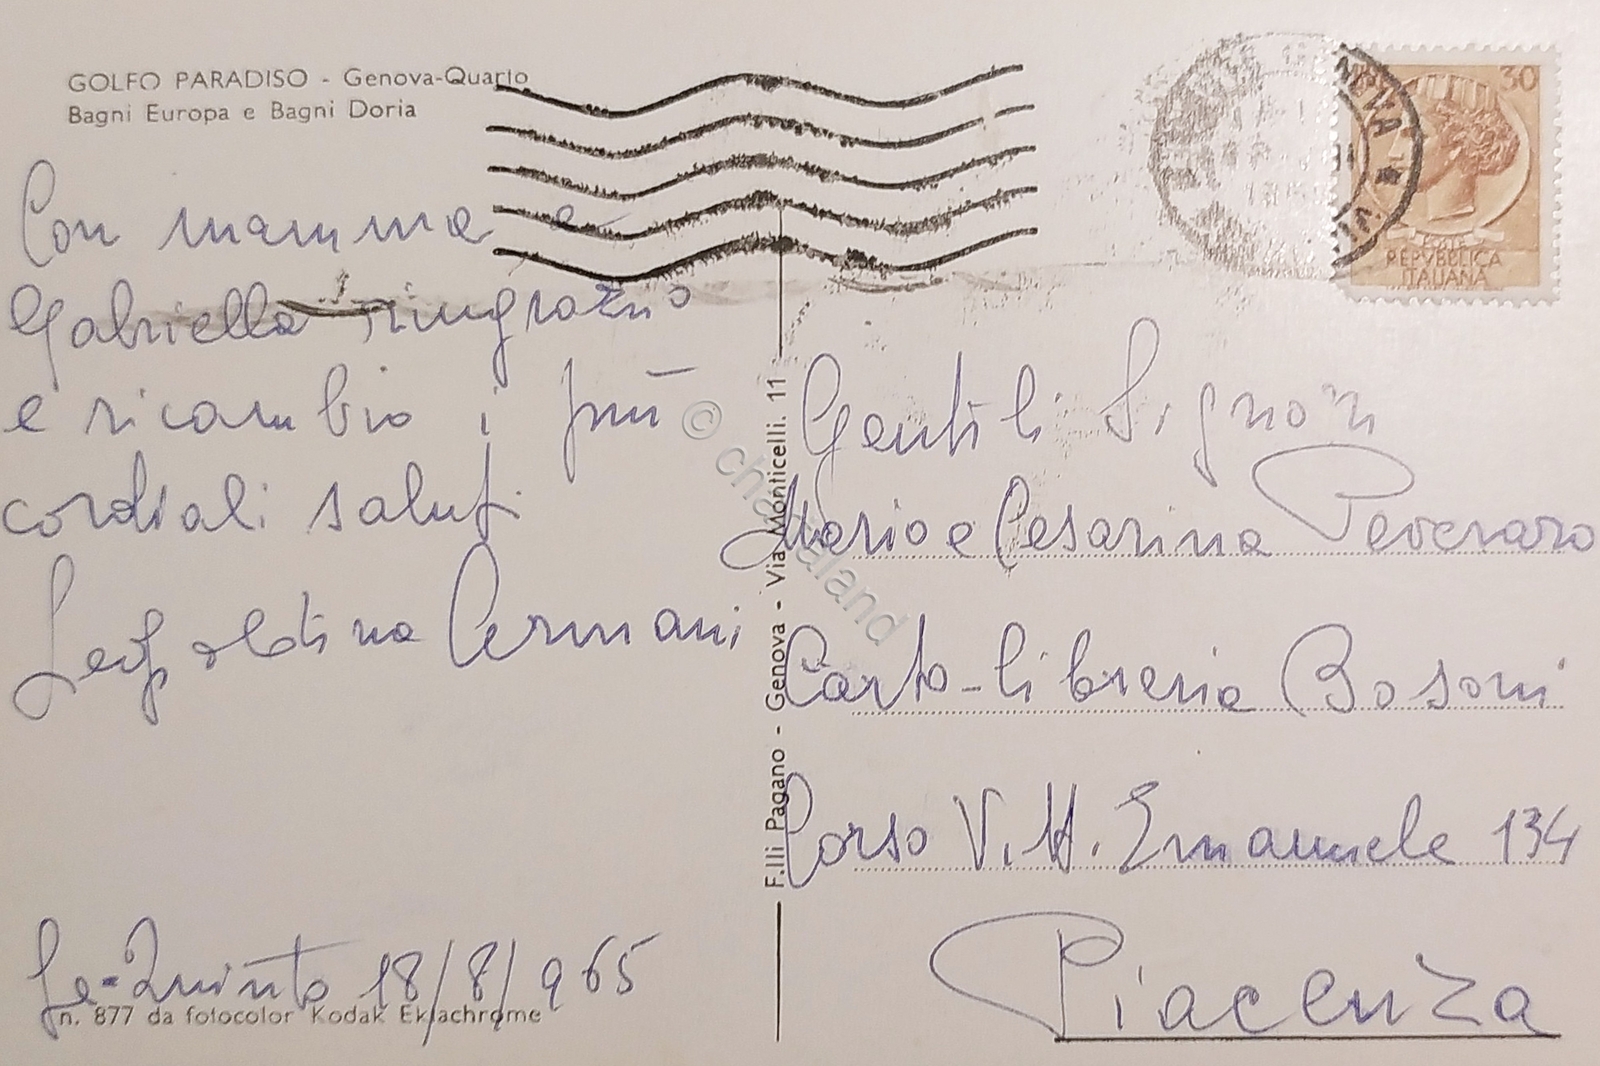 GOLFO PARADISO - Genova-Quarto
Bagni Europa e Bagni Doria
Con mamma e
Gabriella ringrazio
e ricambio i più
cordiali saluti
Leopoldina Cermani
Ge-Quinto 18/8/965
n. 877 da fotocolor Kodak Ektachrome
F.lli Pagano - Genova - Via Monticelli. 11
30
POSTE
REPVBBLICA
ITALIANA
Gentili Signori
Mario e Cesarina Peveraro
Carto-libreria Bosoni
Corso Vitt. Emanuele 134
Piacenza